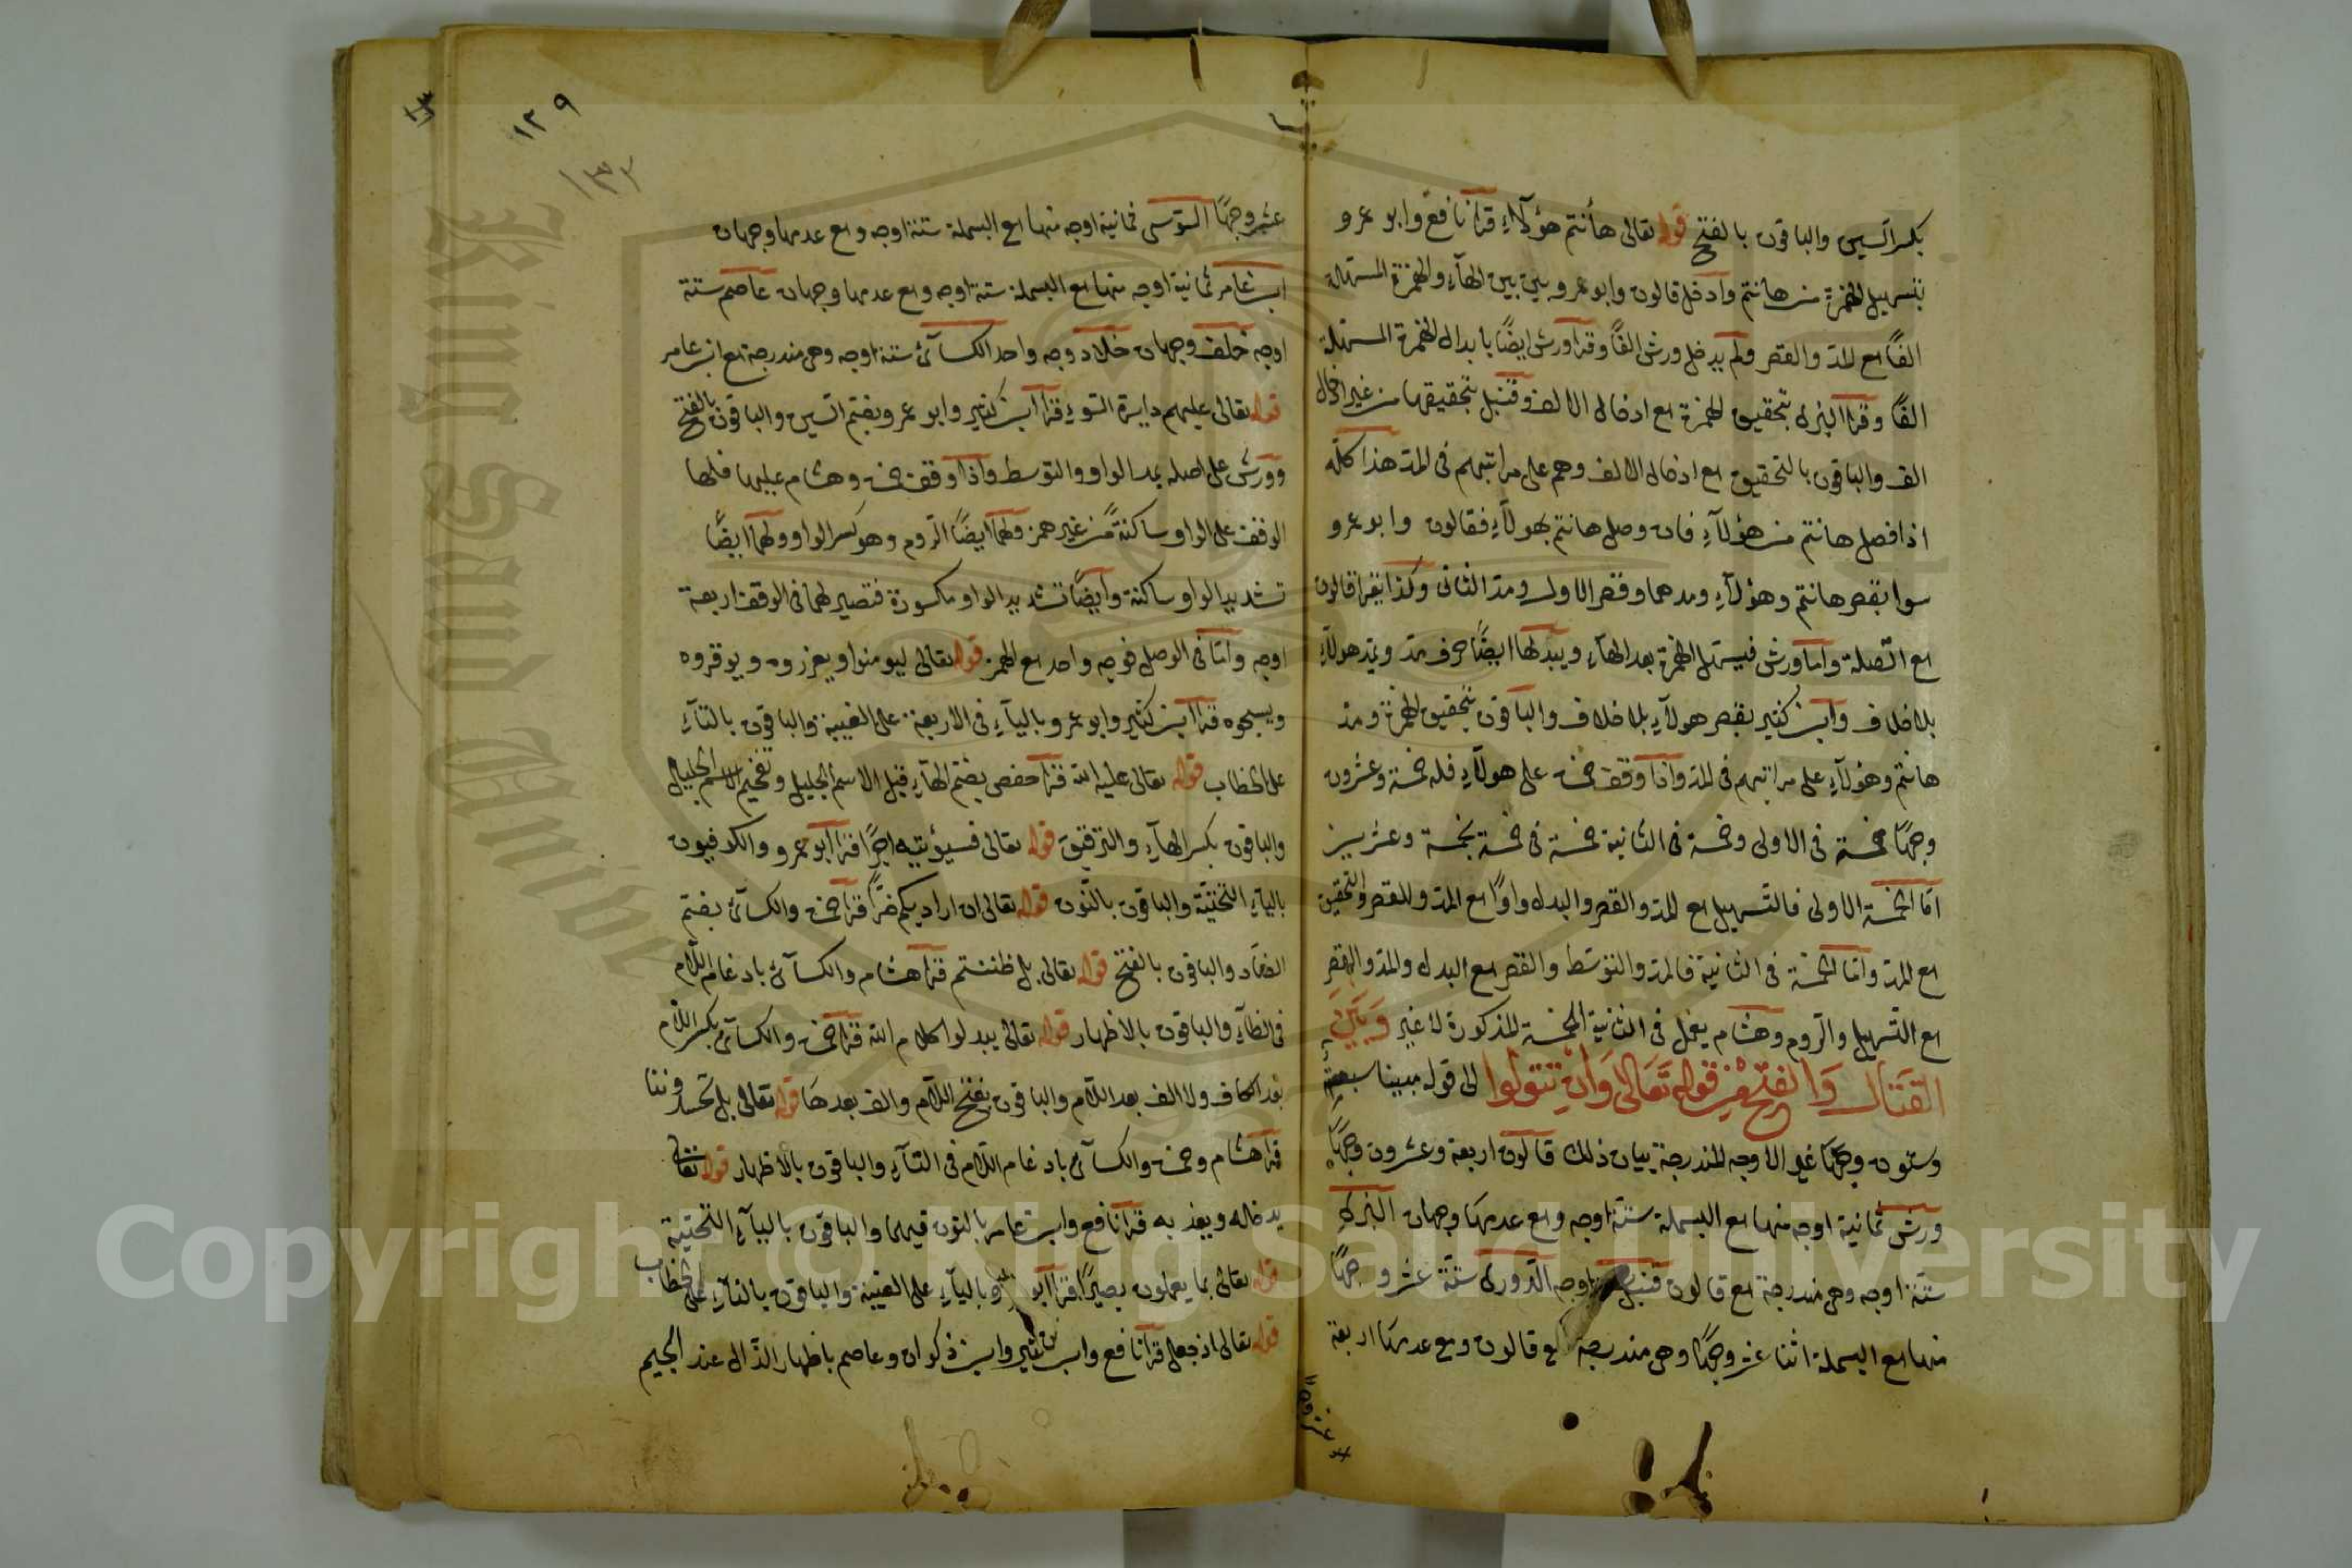 بكسر السين والباقون بالفتح قوله تعالى هأنتم هؤلاء قرا نافع وابو عمرو
بتسهيل الهمزة من هانتم وادخل قالون وابو عمرو بين الهآء والهمزة المسهلة
الفًا مع المد والقصر ولم يدخل ورش الفًا وقرا ورش ايضًا بابدال الهمزة المسهلة
الفًا وقرا البزى بتحقيق الهمزة مع ادخال الالف وقنبل بتحقيقها من غير ادخال
الف والباقون بالتحقيق مع ادخال الالف وهم على مراتبهم فى المد هذا كله
اذا فصل هانتم من هؤلآء فان وصل هانتم بهولآء فقالون وابو عمرو
سوا بقصر هانتم وهؤلآء ومدهما وقصر الاول ومد الثانى وكذا يقرا قالون
مع الصلة واما ورش فيسهل الهمزة بعد الهآء ويبدلها ايضًا حرف مد ويمد هولآء
بلا خلاف وابن كثير بقصر هولآء بلا خلاف والباقون بتحقيق الهمزة ومد
هانتم وهؤلآء على مراتبهم فى المد واذا وقف حمزة على هولآء فله خمسة وعشرون
وجهًا خمسة فى الاولى وخمسة فى الثانية خمسة فى خمسة بخمسة وعشرين
امّا الخمسة الاولى فالتسهيل مع المد والقصر والبدل واوًا مع المد والقصر والتحقيق
مع المد وامّا الخمسة فى الثانية فالمد والتوسّط والقصر مع البدل والمد والقصر
مع التسهيل والروم وهشام يفعل فى الثانية الخمسة المذكورة لا غير وَبَيْنَ
القتال والفتح من قوله تعالى وان تتولوا الى قوله مبينا سبعة
وستون وجهًا غير الاوجه المندرجة بيان ذلك قالون اربعة وعشرون وجهًا
ورش ثمانية اوجه منها مع البسملة ستة اوجه ومع عدمها وجهان البزى
ستة اوجه وهى مندرجة مع قالون قنبل اوجه الدورى ستة عشر وجهًا
منها مع البسملة اثنا عشر وجهًا وهى مندرجة مع قالون ومع عدمها اربعة
١٢٩
١٣٢
عشر وجهًا السوسى ثمانية اوجه منها مع البسملة ستة اوجه ومع عدمها وجهان
ابن عامر ثمانية اوجه منها مع البسملة ستة اوجه ومع عدمها وجهان عاصم ستة
اوجه خلف وجهان خلاد وجه واحد الكسآئى ستة اوجه وهى مندرجة مع ابن عامر
قوله تعالى عليهم دايرة السوء قرا ابن كثير وابو عمرو بضم السين والباقون بالفتح
وورش على اصله بمد الواو والتوسط واذا وقف حمزة وهشام عليها فلهما
الوقف على الواو ساكنة من غير همز ولهما ايضًا الروم وهو كسر الواو ولهما ايضًا
تشديد الواو ساكنة وايضًا تشديد الواو مكسورة فتصير لهما فى الوقف اربعة
اوجه وامّا فى الوصل فوجه واحد مع الهمز قوله تعالى ليومنوا ويعزروه ويوقروه
ويسبحوه قرا ابن كثير وابو عمرو باليآء فى الاربعة على الغيبة والباقون بالتآء
على الخطاب قوله تعالى عليه الله قرا حفص بضم الهآء قبل الاسم الجليل وتفخيم الاسم الجليل
والباقون بكسر الهآء والترقيق قوله تعالى فسيؤتيه اجرًا قرا ابو عمرو والكوفيون
باليآء التحتيّة والباقون بالنّون قوله تعالى ان اراد بكم ضرًّا قرا حمزة والكسآئى بضم
الضّاد والباقون بالفتح قوله تعالى بل ظننتم قرا هشام والكسآئى بادغام اللّام
فى الظآء والباقون بالاظهار قوله تعالى يبدلوا كلام الله قرا حمزة والكسآئى بكسر اللام
بعد الكاف ولا الف بعد اللام والباقون بفتح اللّام والف بعدها قوله تعالى بل تحسدوننا
قرا هشام وحمزة والكسآئى بادغام اللام فى التآء والباقون بالاظهار قوله تعالى
يدخله ويعذبه قرا نافع وابن عامر بالنون فيهما والباقون باليآء التحتية
قوله تعالى بما يعملون بصيرًا قرا ابو باليآء على الغيبة والباقون بالتآء على الخطاب
قوله تعالى اذ جعل قرا نافع وابن كثير وابن ذكوان وعاصم باظهار الذال عند الجيم
Copyright © King Saud University
King Saud University